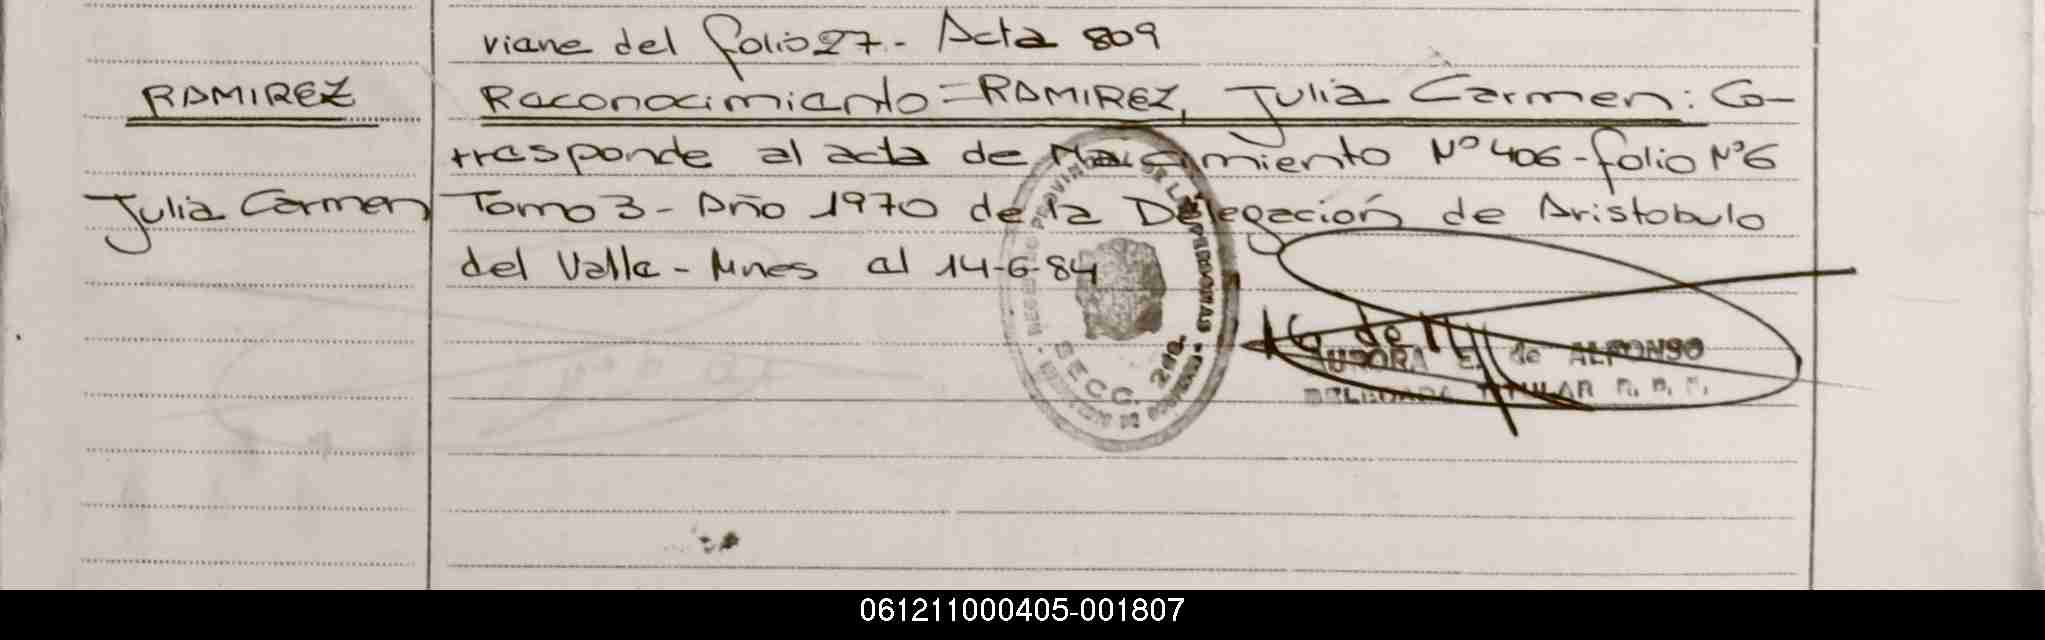 viene del folio 27- Acta 809
RAMIREZ
Reconocimiento=RAMIREZ, Julia Carmen: Co-
rresponde al acta de Nacimiento Nº 406-folio Nº6
Julia Carmen
Tomo 3- Año 1970 de la Delegación de Aristobulo
del Valle- Mnes al 14-6-84
AURORA E. de ALFONSO
DELEGADA TITULAR R. P. P.
SECC. 2
061211000405-001807